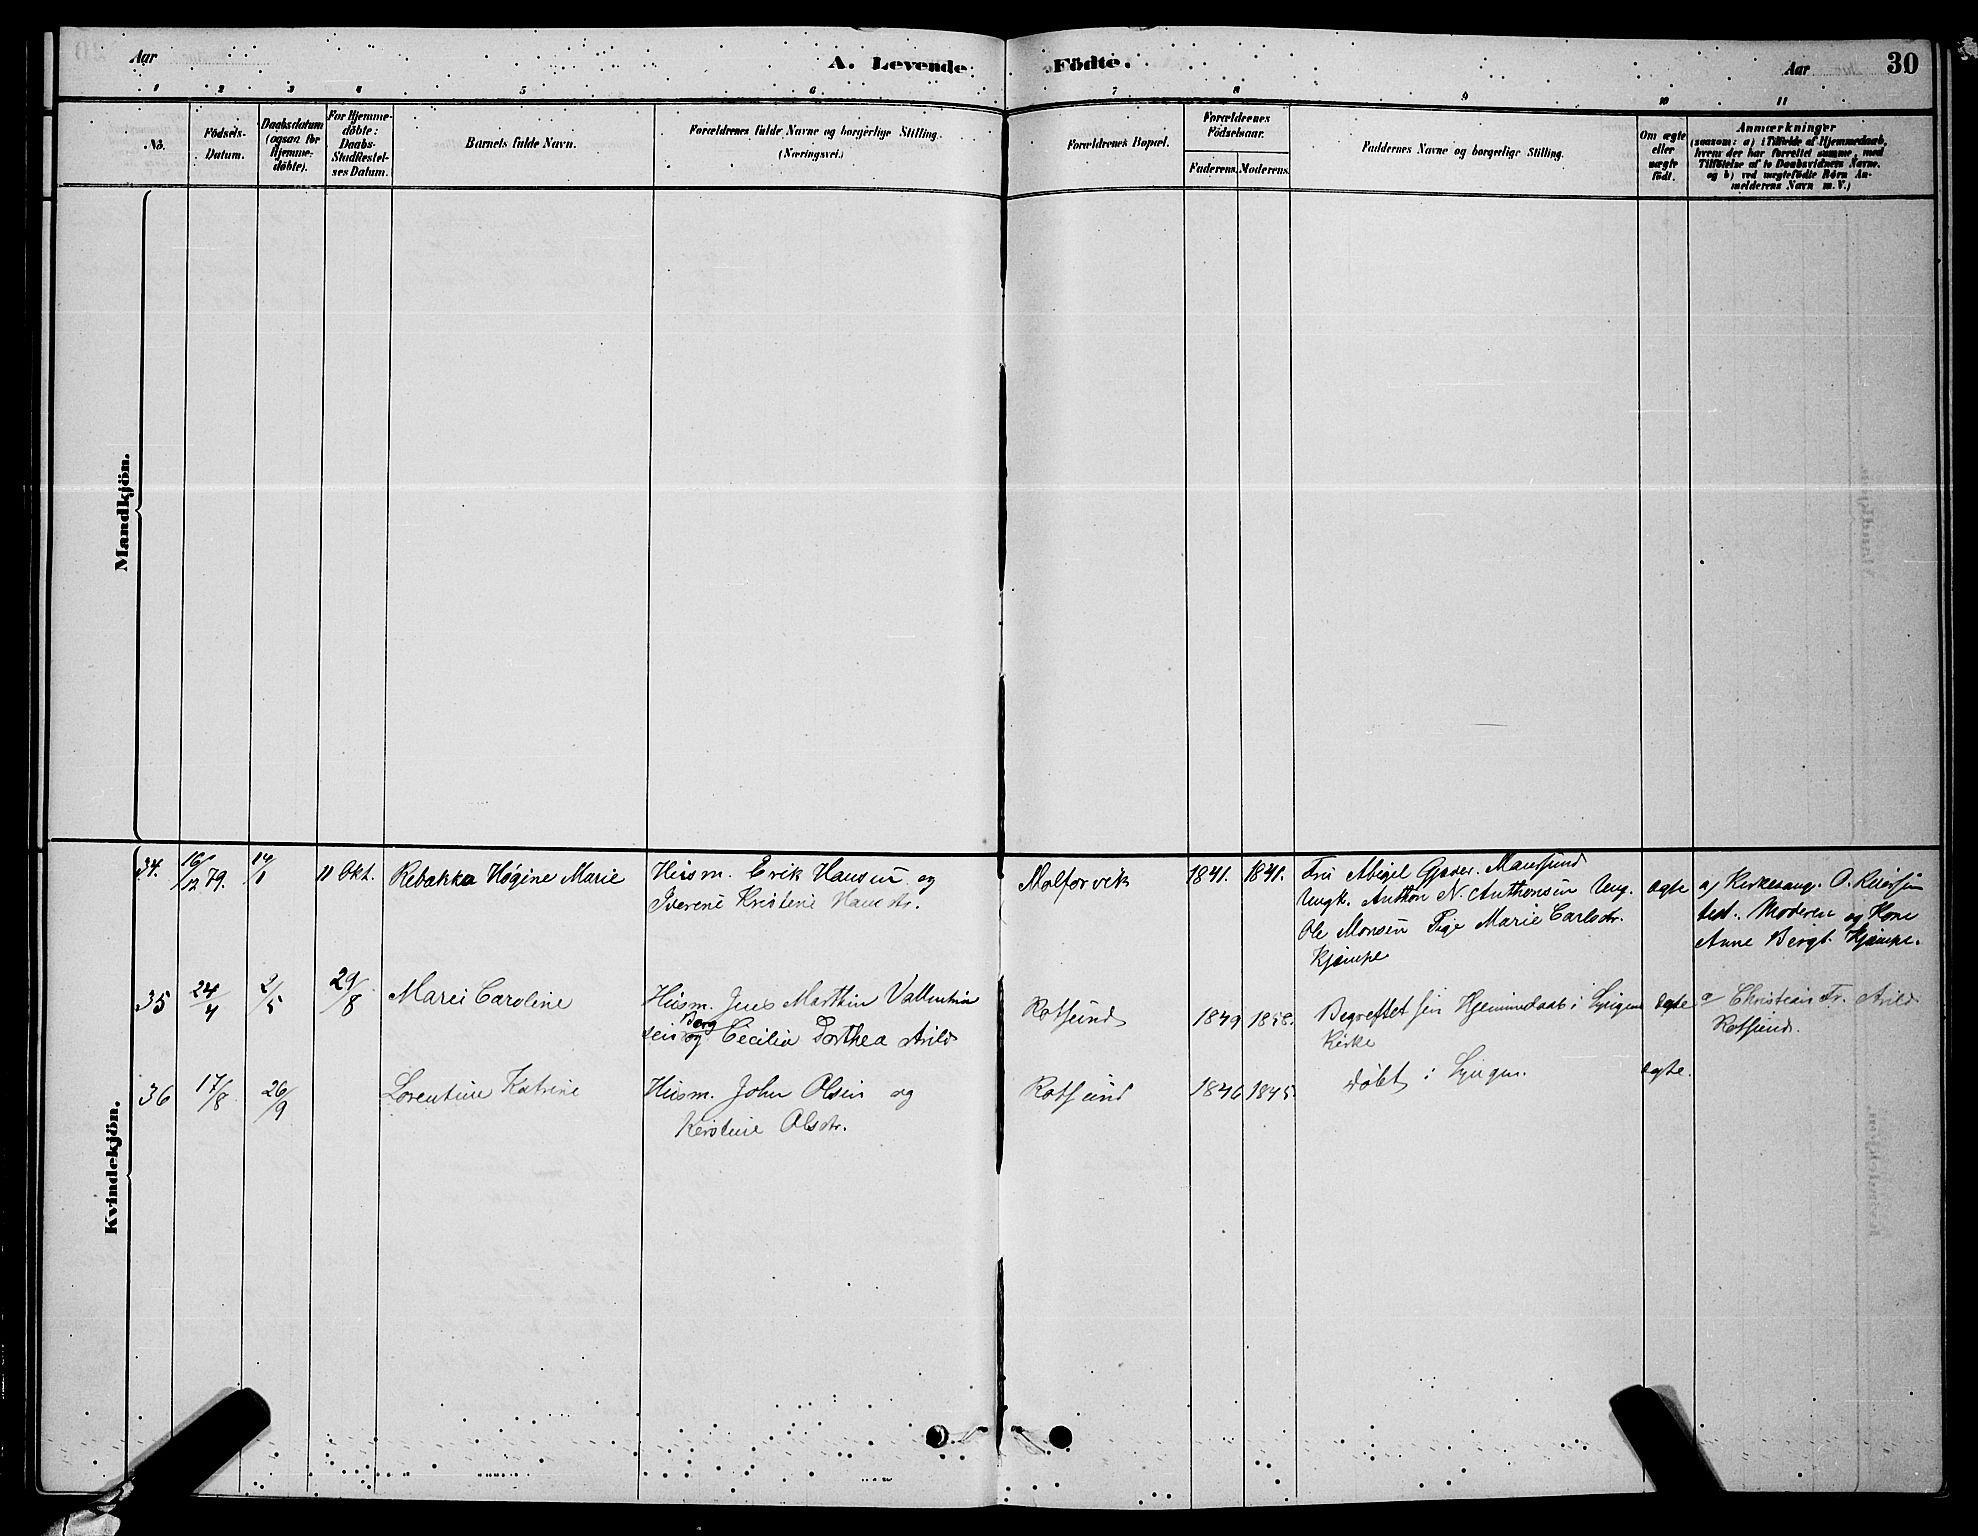 Aar
A. Levende
Födte.
Aar
30
1 2 3 4 5 6 7 8 9 10 11
No.
Födsels-
Datum.
Daabsdatum
(ogsaa for
Hjemme-
döbte).
For Hjemme-
döbte:
Daabs-
Stadfæstel-
ses Datum.
Barnets fulde Navn.
Forældrenes fulde Navne og borgerlige Stilling.
(Næringsvei.)
Forældrenes Bopæl.
Forældrenes
Födselsaar.
Faderens. Moderens.
Faddernes Navne og borgerlige Stilling.
Om ægte
eller
uægte
födt.
Anmærkninger
(saasom: a) i Tilfælde af Hjemmedaab,
hvem der har forrettet samme, med
Tilföielse af to Daabsvidners Navne.
og b) ved uægtefödte Börn An-
melderens Navn m. V.)
Mandkjön.
Kvindekjön.
34. 16/12 79. 14/1 11 Okt. Rebakka Högine Marie
Husm. Erik Hansen og
Iverene Kristene Hansdtr.
Malforvik 1841. 1841.
Fru Abigel Gjæver. Maursund
Ungk. Anthon N. Anthonsen Ung.
Ole Monsen Pige Marie Carlsdtr.
Kjæmpe
ægte
a) Kirkesang. O. Reiersen
test. Moderen og Kone
Anne Bergt. Kjæmpe.
35 24/4 2/5 29/8 Marei Caroline
Husm. Jens Marthin Vallentin
sen Berg og Cecilia Dorthea Arild
Rotsund 1849 1858.
Begreftet sin Hjemmedaab i Lyngen
Kirke
ægte
a/ Christian Fr. Arild
Rotsund.
36 17/8 26/9 Lorentine Katrine
Husm. John Olsen og
Kerstine Olsdtr.
Rotsund 1846 1845.
döbt i Lyngen.
ægte.